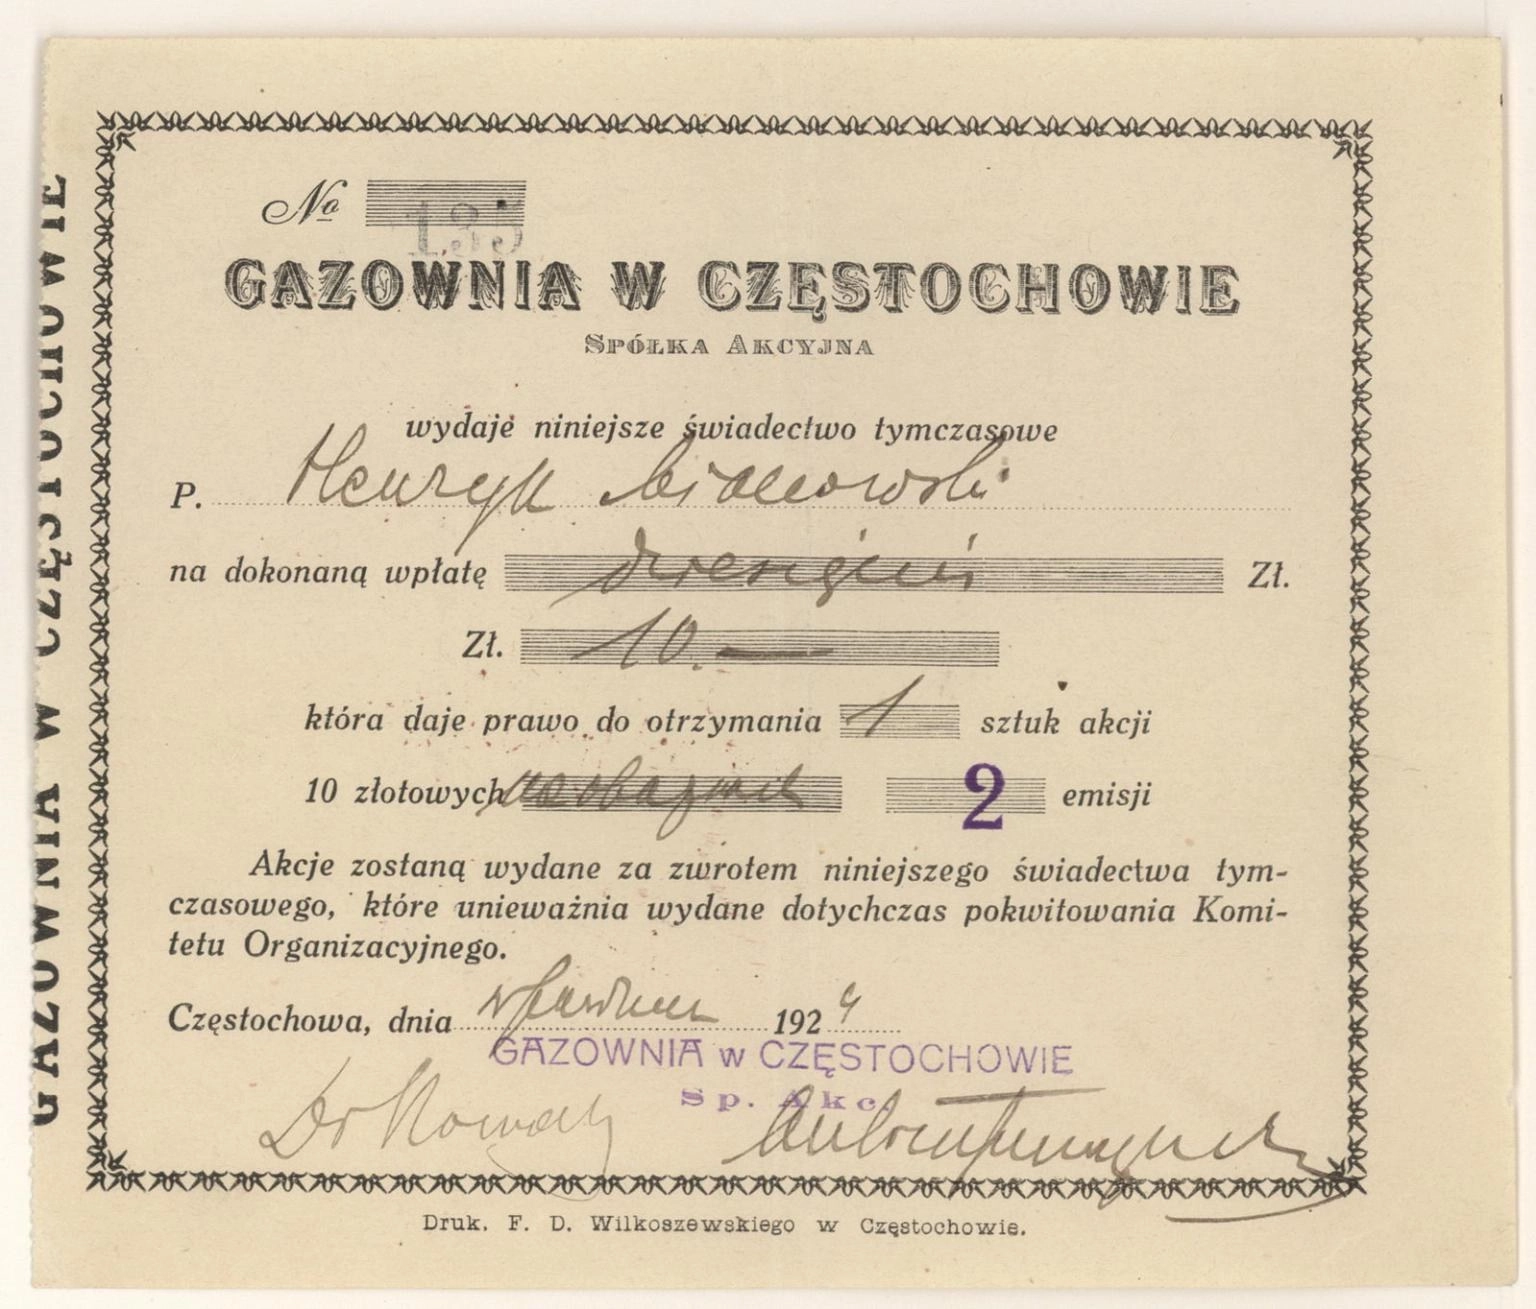 No 135
GAZOWNIA W CZĘSTOCHOWIE
SPÓŁKA AKCYJNA
wydaje niniejsze świadectwo tymczasowe
P. Henryk
na dokonaną wpłatę dziesięciu Zł.
Zł. 10.—
która daje prawo do otrzymania 1 sztuk akcji
10 złotowych na okaziciela 2 emisji
Akcje zostaną wydane za zwrotem niniejszego świadectwa tym-
czasowego, które unieważnia wydane dotychczas pokwitowania Komi-
tetu Organizacyjnego.
Częstochowa, dnia 1924
GAZOWNIA w CZĘSTOCHOWIE
Sp. Akc.
Dr Nowak
Druk. F. D. Wilkoszewskiego w Częstochowie.
GAZOWNIA W CZĘSTOCHOWIE